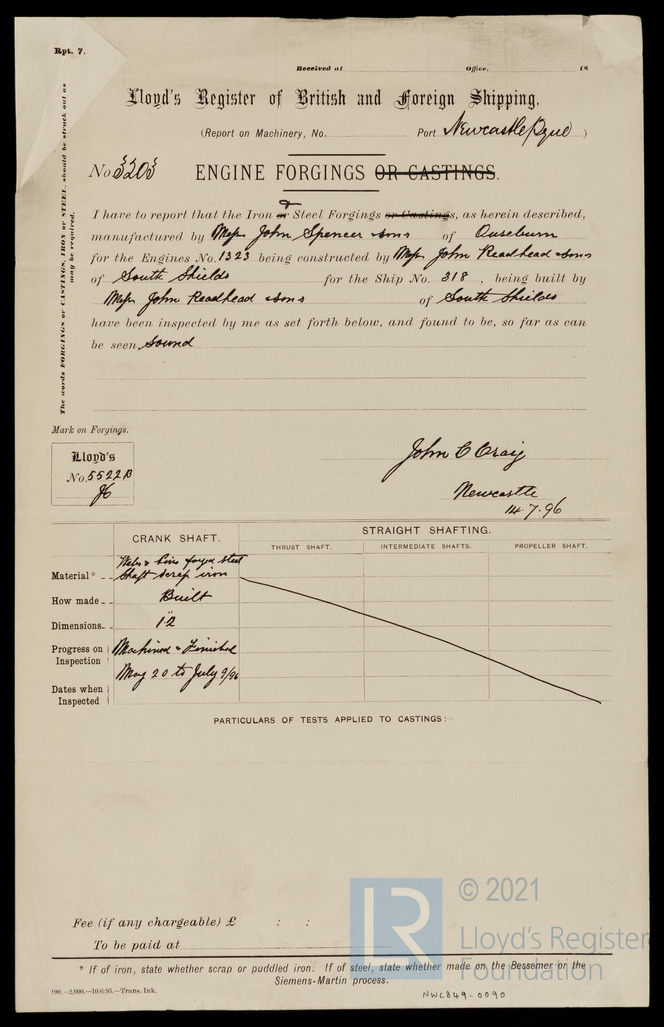 Rpt. 7.
Received at Office, 18
Lloyd's Register of British and Foreign Shipping.
(Report on Machinery, No. Port Newcastle/Tyne )
No 3203 ENGINE FORGINGS OR CASTINGS.
The words FORGINGS or CASTINGS, IRON or STEEL, should be struck out as
may be required.
I have to report that the Iron & or Steel Forgings or Castings, as herein described,
manufactured by Messrs John Spencer & sons of Ouseburn
for the Engines No. 1323 being constructed by Messrs John Readhead & sons
of South Shields for the Ship No. 318 , being built by
Messrs John Readhead & sons of South Shields
have been inspected by me as set forth below, and found to be, so far as can
be seen sound
Mark on Forgings.
Lloyd's
No. 5522B
John C Craig
Newcastle
14.7.96
CRANK SHAFT. STRAIGHT SHAFTING.
THRUST SHAFT. INTERMEDIATE SHAFTS. PROPELLER SHAFT.
Webs & Pins forged steel
Material* Shaft scrap iron
How made Built
Dimensions 12"
Progress on Inspection Machined & Finished
Dates when Inspected May 20 to July 9/96
PARTICULARS OF TESTS APPLIED TO CASTINGS:—
Fee (if any chargeable) £ : :
To be paid at
* If of iron, state whether scrap or puddled iron. If of steel, state whether made on the Bessemer or the
Siemens-Martin process.
190.—2,000.—10/6/95.—Trans. Ink.
NWC849-0090
LR
© 2021
Lloyd's Register
Foundation